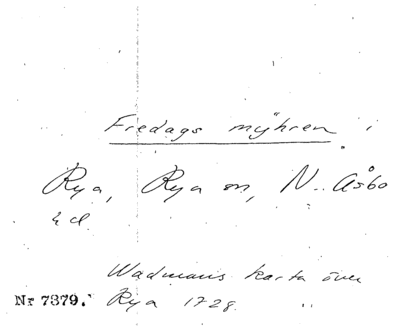 Fredags mÿhren i
Rya, Rya sn, N. Åsbo
hd.
Wadmans karta över
Nr 7379. Rya 1728